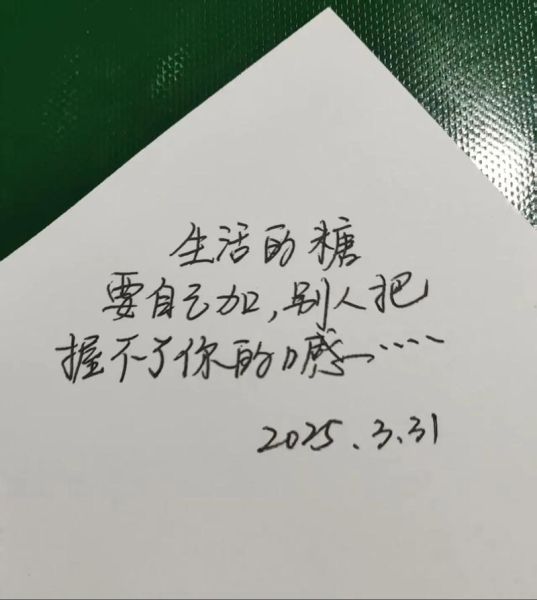 生活的糖
要自己加,别人把
握不了你的口感……
2025.3.31